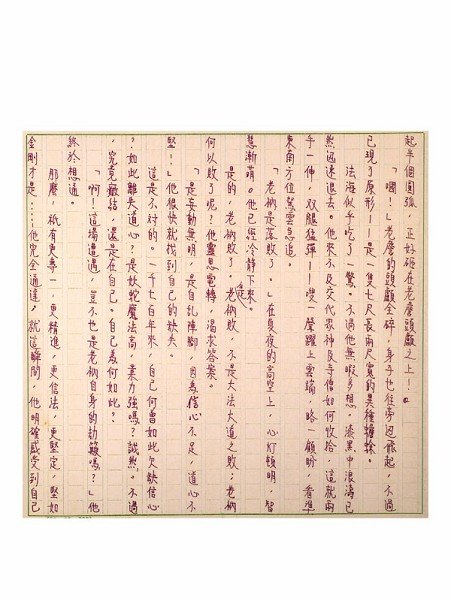 起半個圓弧,正好砸在老磨頭顱之上!。
「嗯!」老磨的頭顱全碎,身子也往旁迴飛起,不過
已現了原形——是一隻七尺長兩尺寬的異種蟾蜍。
法海似乎吃了一驚。不過他無暇多想,漆黑中浪濤已
然迅速退去。他來不及交代眾神及寺僧如何收拾,這就兩
手一伸,双腿猛彈——嗖一聲躍上雲端,略一顧盼,看準
東南方位駕雲急追。
「老衲是落敗了。」在夏夜的高空上,心灯頓明,智
慧漸晴。他已經冷靜下來。
是的,老衲敗了。老衲敗,不是大法大道之敗;老衲
何以敗了呢?他靈思電轉,渴求答案。
「是妄動無明,是自乱陣腳,因為信心不足,道心不
堅!」他很快就找到自己的缺失。
這是不对的。一千七百年來,自己何曾如此欠缺信心
?如此離失道心?是妖蛇魔法高,業力強嗎?誠然。不過
,究竟癥結,還是在自己。自己為何如此?
「啊!這場遭遇,豈不也是老衲自身的劫籙嗎?」他
終於想通。
那麼,祇有更專一,更精進,更信法,更堅定,堅如
金剛才是……他完全通達。就這瞬間,他明確感受到自己